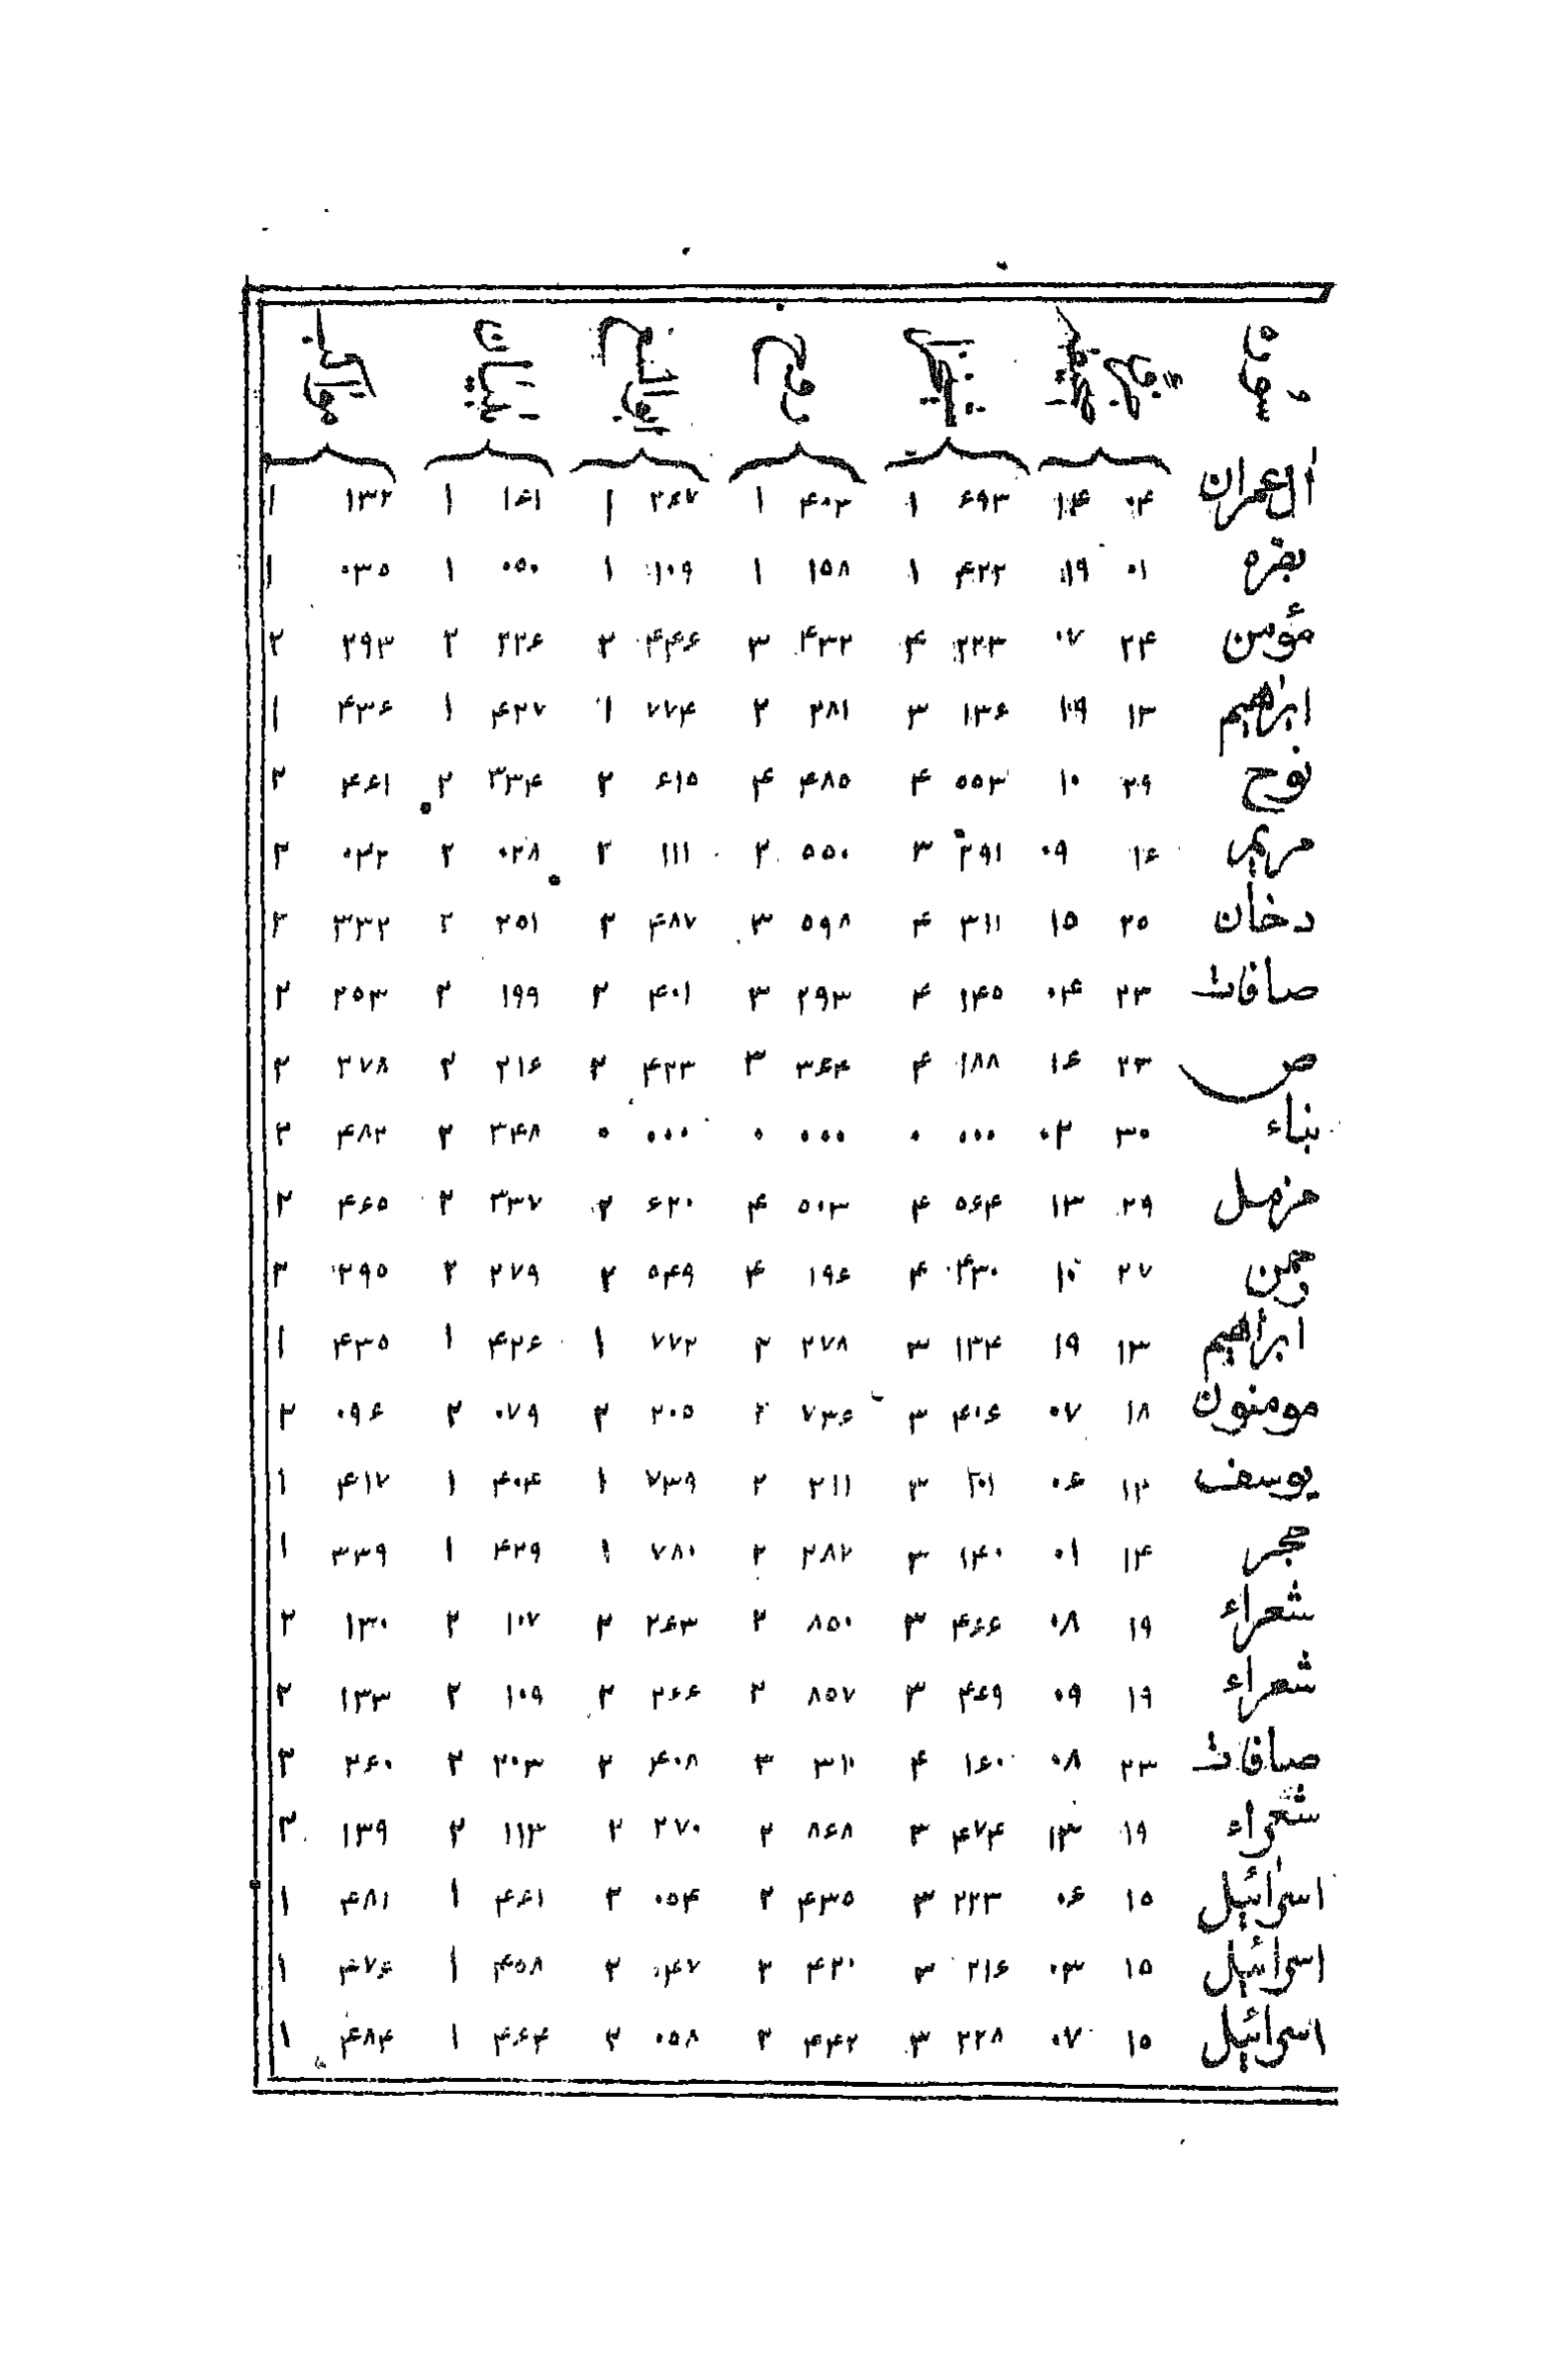 سوره
آل عمران ۰۴ ۱۴ ۶۹۳ ۱ ۴۰۳ ۱ ۲۶۷ ۱ ۱۶۱ ۱ ۱۳۲ ۱
بقره ۰۱ ۱۹ ۴۲۲ ۱ ۱۵۸ ۱ ۱۰۹ ۱ ۰۵۰ ۱ ۰۳۵ ۱
مؤمن ۲۴ ۰۷ ۲۲۳ ۴ ۴۳۲ ۳ ۴۴۶ ۲ ۲۲۶ ۲ ۲۹۳ ۲
ابراهیم ۱۳ ۱۹ ۱۳۶ ۳ ۲۸۱ ۲ ۷۷۴ ۱ ۴۲۷ ۱ ۴۳۶ ۱
نوح ۲۹ ۱۰ ۵۵۳ ۴ ۴۸۵ ۴ ۶۱۵ ۲ ۳۳۴ ۲ ۴۶۱ ۲
مریم ۱۶ ۰۹ ۲۹۱ ۳ ۵۵۰ ۲ ۱۱۱ ۲ ۰۲۸ ۲ ۰۳۲ ۲
دخان ۲۵ ۱۵ ۳۱۱ ۴ ۵۹۸ ۳ ۴۸۷ ۲ ۲۵۱ ۲ ۳۳۲ ۲
صافات ۲۳ ۰۴ ۱۴۵ ۴ ۲۹۳ ۳ ۴۰۱ ۲ ۱۹۹ ۲ ۲۵۳ ۲
ص ۲۳ ۱۶ ۱۸۸ ۴ ۳۶۴ ۳ ۴۲۳ ۲ ۲۱۶ ۲ ۲۷۸ ۲
نباء ۳۰ ۰۲ ۰۰۰ ۰ ۰۰۰ ۰ ۰۰۰ ۰ ۳۴۸ ۲ ۴۸۲ ۲
مزمل ۲۹ ۱۳ ۵۶۴ ۴ ۵۰۳ ۴ ۶۲۰ ۲ ۳۳۷ ۲ ۴۶۵ ۲
۲۷ ۱۰ ۴۳۰ ۴ ۱۹۶ ۴ ۵۴۹ ۲ ۲۷۹ ۲ ۲۹۵ ۲
ابراهیم ۱۳ ۱۹ ۱۳۴ ۳ ۲۷۸ ۲ ۷۷۲ ۱ ۴۲۶ ۱ ۴۳۵ ۱
مومنون ۱۸ ۰۷ ۴۰۶ ۳ ۷۳۶ ۲ ۲۰۵ ۲ ۰۷۹ ۲ ۰۹۶ ۲
یوسف ۱۲ ۰۶ ۲۰۱ ۳ ۲۱۱ ۲ ۷۳۹ ۱ ۴۰۴ ۱ ۴۱۷ ۱
حجر ۱۴ ۰۱ ۱۴۰ ۳ ۲۸۷ ۲ ۷۸۰ ۱ ۴۲۹ ۱ ۳۳۹ ۱
شعراء ۱۹ ۰۸ ۴۶۶ ۳ ۸۵۰ ۲ ۲۶۳ ۲ ۱۰۷ ۲ ۱۳۰ ۲
شعراء ۱۹ ۰۹ ۴۶۹ ۳ ۸۵۷ ۲ ۲۶۶ ۲ ۱۰۹ ۲ ۱۳۳ ۲
صافات ۲۳ ۰۸ ۱۶۰ ۴ ۳۱۰ ۳ ۴۰۸ ۲ ۲۰۳ ۲ ۲۶۰ ۲
شعراء ۱۹ ۱۳ ۴۷۴ ۳ ۸۶۸ ۲ ۲۷۰ ۲ ۱۱۳ ۲ ۱۳۹ ۲
اسرائیل ۱۵ ۰۶ ۲۲۳ ۳ ۴۳۵ ۲ ۰۵۴ ۲ ۴۶۱ ۱ ۴۸۱ ۱
اسرائیل ۱۵ ۰۳ ۲۱۶ ۳ ۴۲۰ ۲ ۰۴۷ ۲ ۴۵۸ ۱ ۴۷۶ ۱
اسرائیل ۱۵ ۰۷ ۲۲۸ ۳ ۴۴۲ ۲ ۰۵۸ ۲ ۴۶۴ ۱ ۴۸۴ ۱